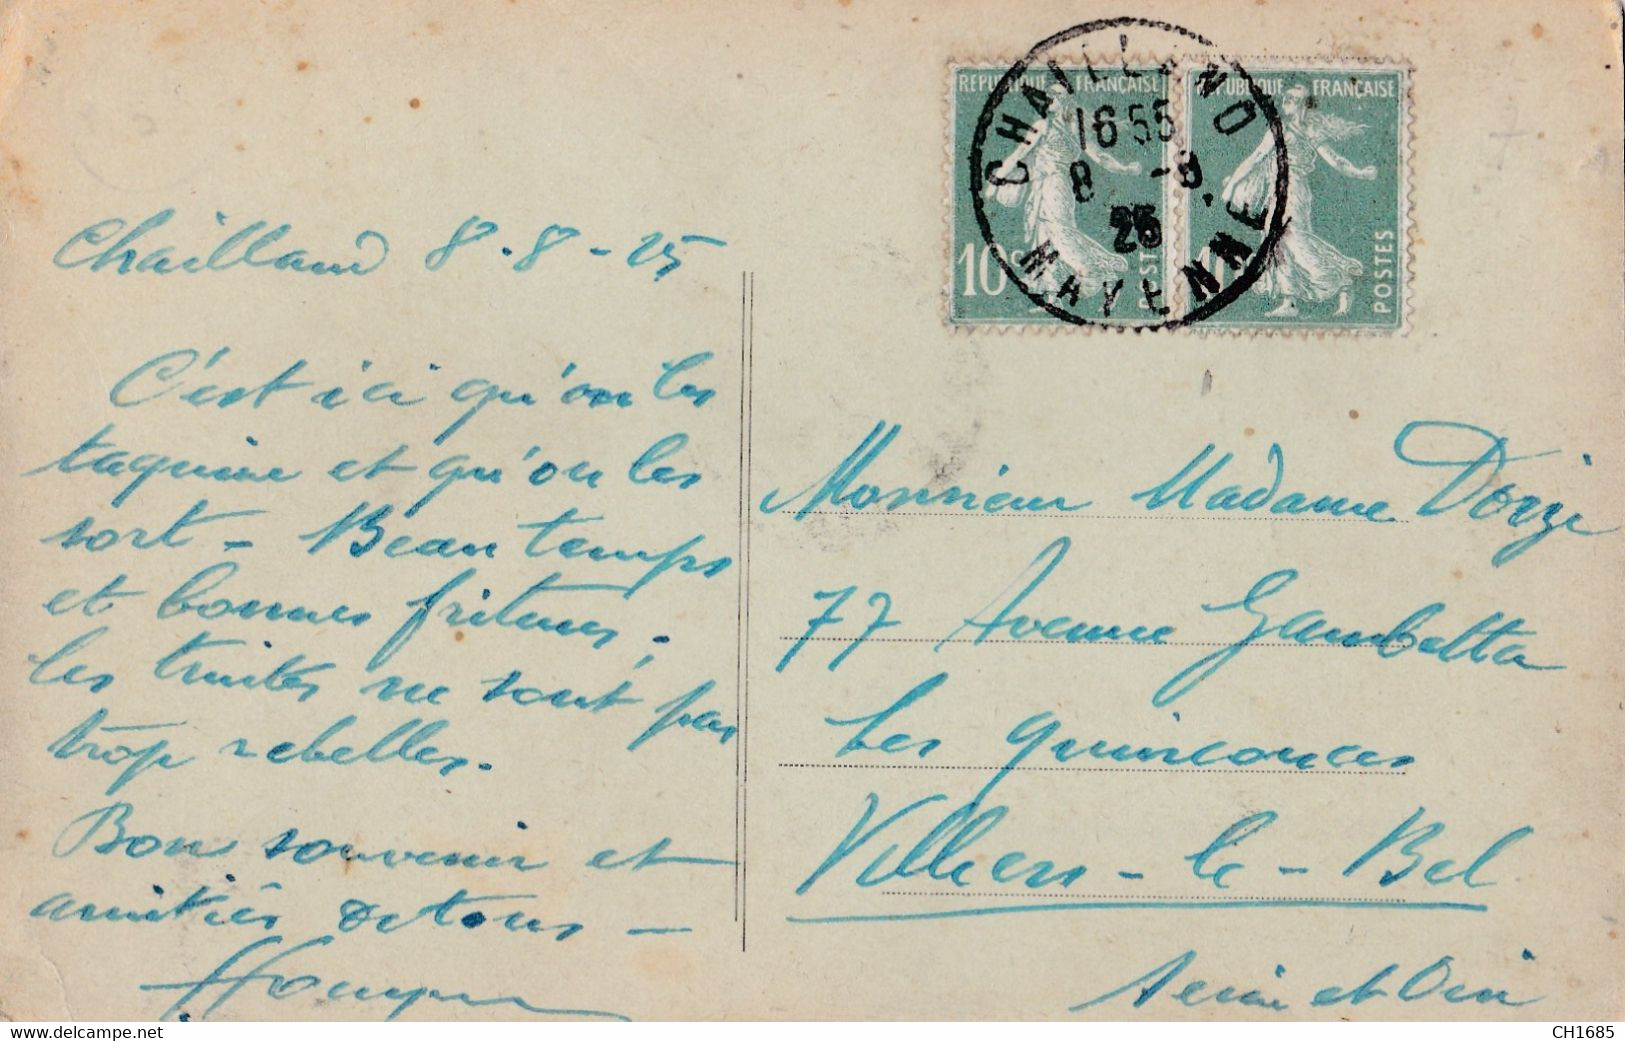 REPUBLIQUE FRANÇAISE
REPUBLIQUE FRANÇAISE
CHAILLAND
16 55
8 -8.
25
MAYENNE
10c
POSTES
10
POSTES
Chailland 8.8-25
C'est ici qu'on les
taquine et qu'on les
sort - Beau temps
et bonnes fritures.
les truites ne sont pas
trop rebelles.
Bon souvenir et
amitiés de tous -
Monsieur Madame
77 Avenue Gambetta
Les quinconces
Villiers-le-Bel
Seine et Oise
www.delcampe.net
CH1685